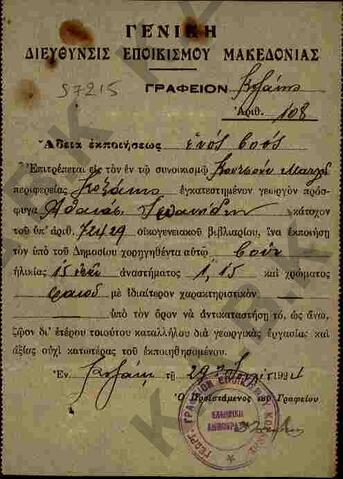 ΓΕΝΙΚΗ
ΔΙΕΥΘΥΝΣΙΣ ΕΠΟΙΚΙΣΜΟΥ ΜΑΚΕΔΟΝΙΑΣ
97215
ΓΡΑΦΕΙΟΝ Κοζάνης
Ἀριθ. 108
Ἄδεια ἐκποιήσεως ἑνός βοός
Ἐπιτρέπεται εἰς τὸν ἐν τῷ συνοικισμῷ
περιφερείας Κοζάνης ἐγκατεστημένον γεωργὸν πρόσ-
φυγα κάτοχον
τοῦ ὑπ' ἀριθ. οἰκογενειακοῦ βιβλιαρίου, ἵνα ἐκποιήσῃ
τὸν ὑπὸ τοῦ Δημοσίου χορηγηθέντα αὐτῷ βοῦν
ἡλικίας 15 ἐτῶν ἀναστήματος 1,15 καὶ χρώματος
φαιοῦ μὲ ἰδιαίτερον χαρακτηριστικὸν
ὑπὸ τὸν ὅρον νὰ ἀντικαταστήσῃ τό, ὡς ἄνω,
ζῷον δι' ἑτέρου τοιούτου καταλλήλου διὰ γεωργικὰς ἐργασίας καὶ
ἀξίας οὐχὶ κατωτέρας τοῦ ἐκποιηθησομένου.
Ἐν Κοζάνῃ τῇ 29 192
Ὁ Προϊστάμενος τοῦ Γραφείου
ΕΛΛΗΝΙΚΗ
ΔΗΜΟΚΡΑΤΙΑ